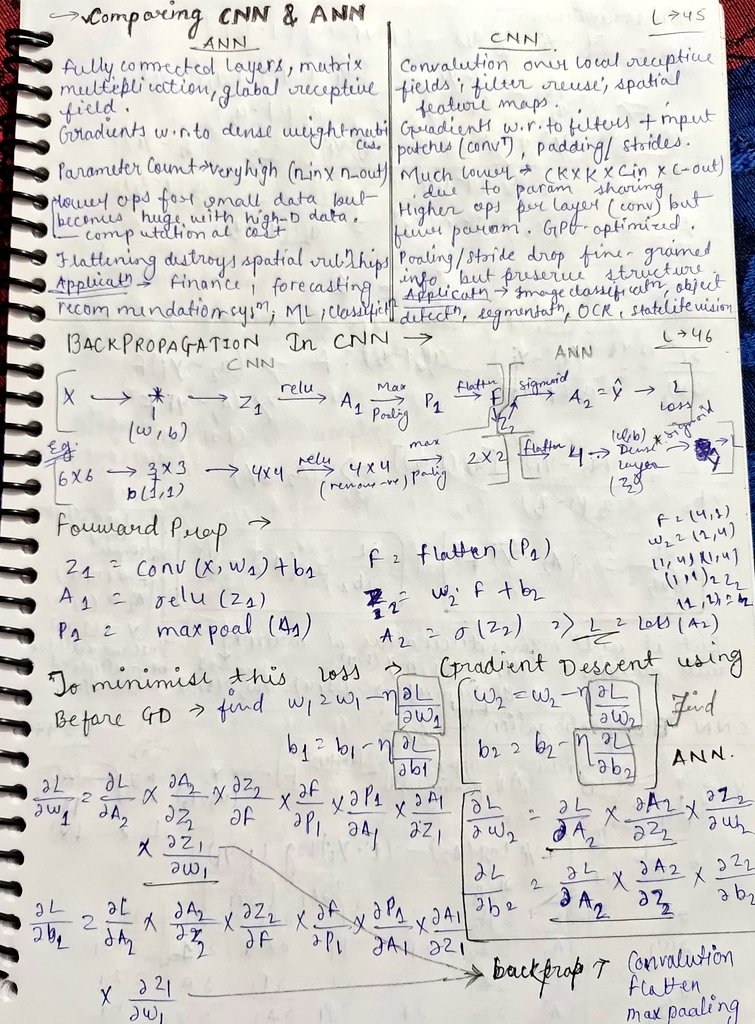 → Comparing CNN & ANN
L→45
ANN
Fully connected layers, matrix
multiplication, global receptive
field.
Gradients w.r.to dense weight matri
ces.
Parameter Count → Very high (n-in x n-out)
lower ops for small data but
becomes huge with high-D data.
computational cost
Flattening destroys spatial rel'nships
Applicatn → Finance, forecasting
recommendation sysm, ML, classificn
CNN
Convalution over local receptive
fields; filter reuse; spatial
feature maps.
Gradients w.r.to filters + input
patches (convn), padding/strides.
Much lower → (K x K x Cin x C-out)
due to param sharing
Higher ops per layer (conv) but
fewer param. GPU-optimized.
Pooling/stride drop fine-grained
info but preserve structure
Applicatn → Image classificatn, object
detectn, segmentatn, OCR, statelite vision
BACKPROPAGATION In CNN →
L→46
CNN
ANN
X → * → Z1 relu → A1 Max Pooling → P1 flatten → F sigmoid → A2 = ŷ → L
Z2
Loss
(w, b)
Eg:
6x6 → 3x3 → 4x4 relu → 4x4 max pooling → 2x2 flatten → 4 → (w,b) Dense layer (Z2) sigmoid → L
b(1,1)
(remove -ve)
Forward Prop →
Z1 = conv(X, W1) + b1
A1 = relu(Z1)
P1 = maxpoal(A1)
F = flatten (P1)
Z2 = w2. F + b2
A2 = σ(Z2) => L = Loss(A2)
F = (4,1)
w2 = (1,4)
(1,4)(4,1)
(1,1) = Z2
(1,1) = b2
To minimise this loss → Gradient Descent using
Before GD → find w1 = w1 - η ∂L/∂w1
b1 = b1 - η ∂L/∂b1
w2 = w2 - η ∂L/∂w2
b2 = b2 - η ∂L/∂b2
Find
ANN.
∂L/∂w1 = ∂L/∂A2 × ∂A2/∂Z2 × ∂Z2/∂F × ∂f/∂P1 × ∂P1/∂A1 × ∂A1/∂Z1
× ∂Z1/∂w1
∂L/∂w2 = ∂L/∂A2 × ∂A2/∂Z2 × ∂Z2/∂w2
∂L/∂b2 = ∂L/∂A2 × ∂A2/∂Z2 × ∂Z2/∂b2
∂L/∂b1 = ∂L/∂A2 × ∂A2/∂Z2 × ∂Z2/∂F × ∂f/∂P1 × ∂P1/∂A1 × ∂A1/∂Z1
× ∂Z1/∂w1
backprop ↑
Convalution
flatten
maxpaaling